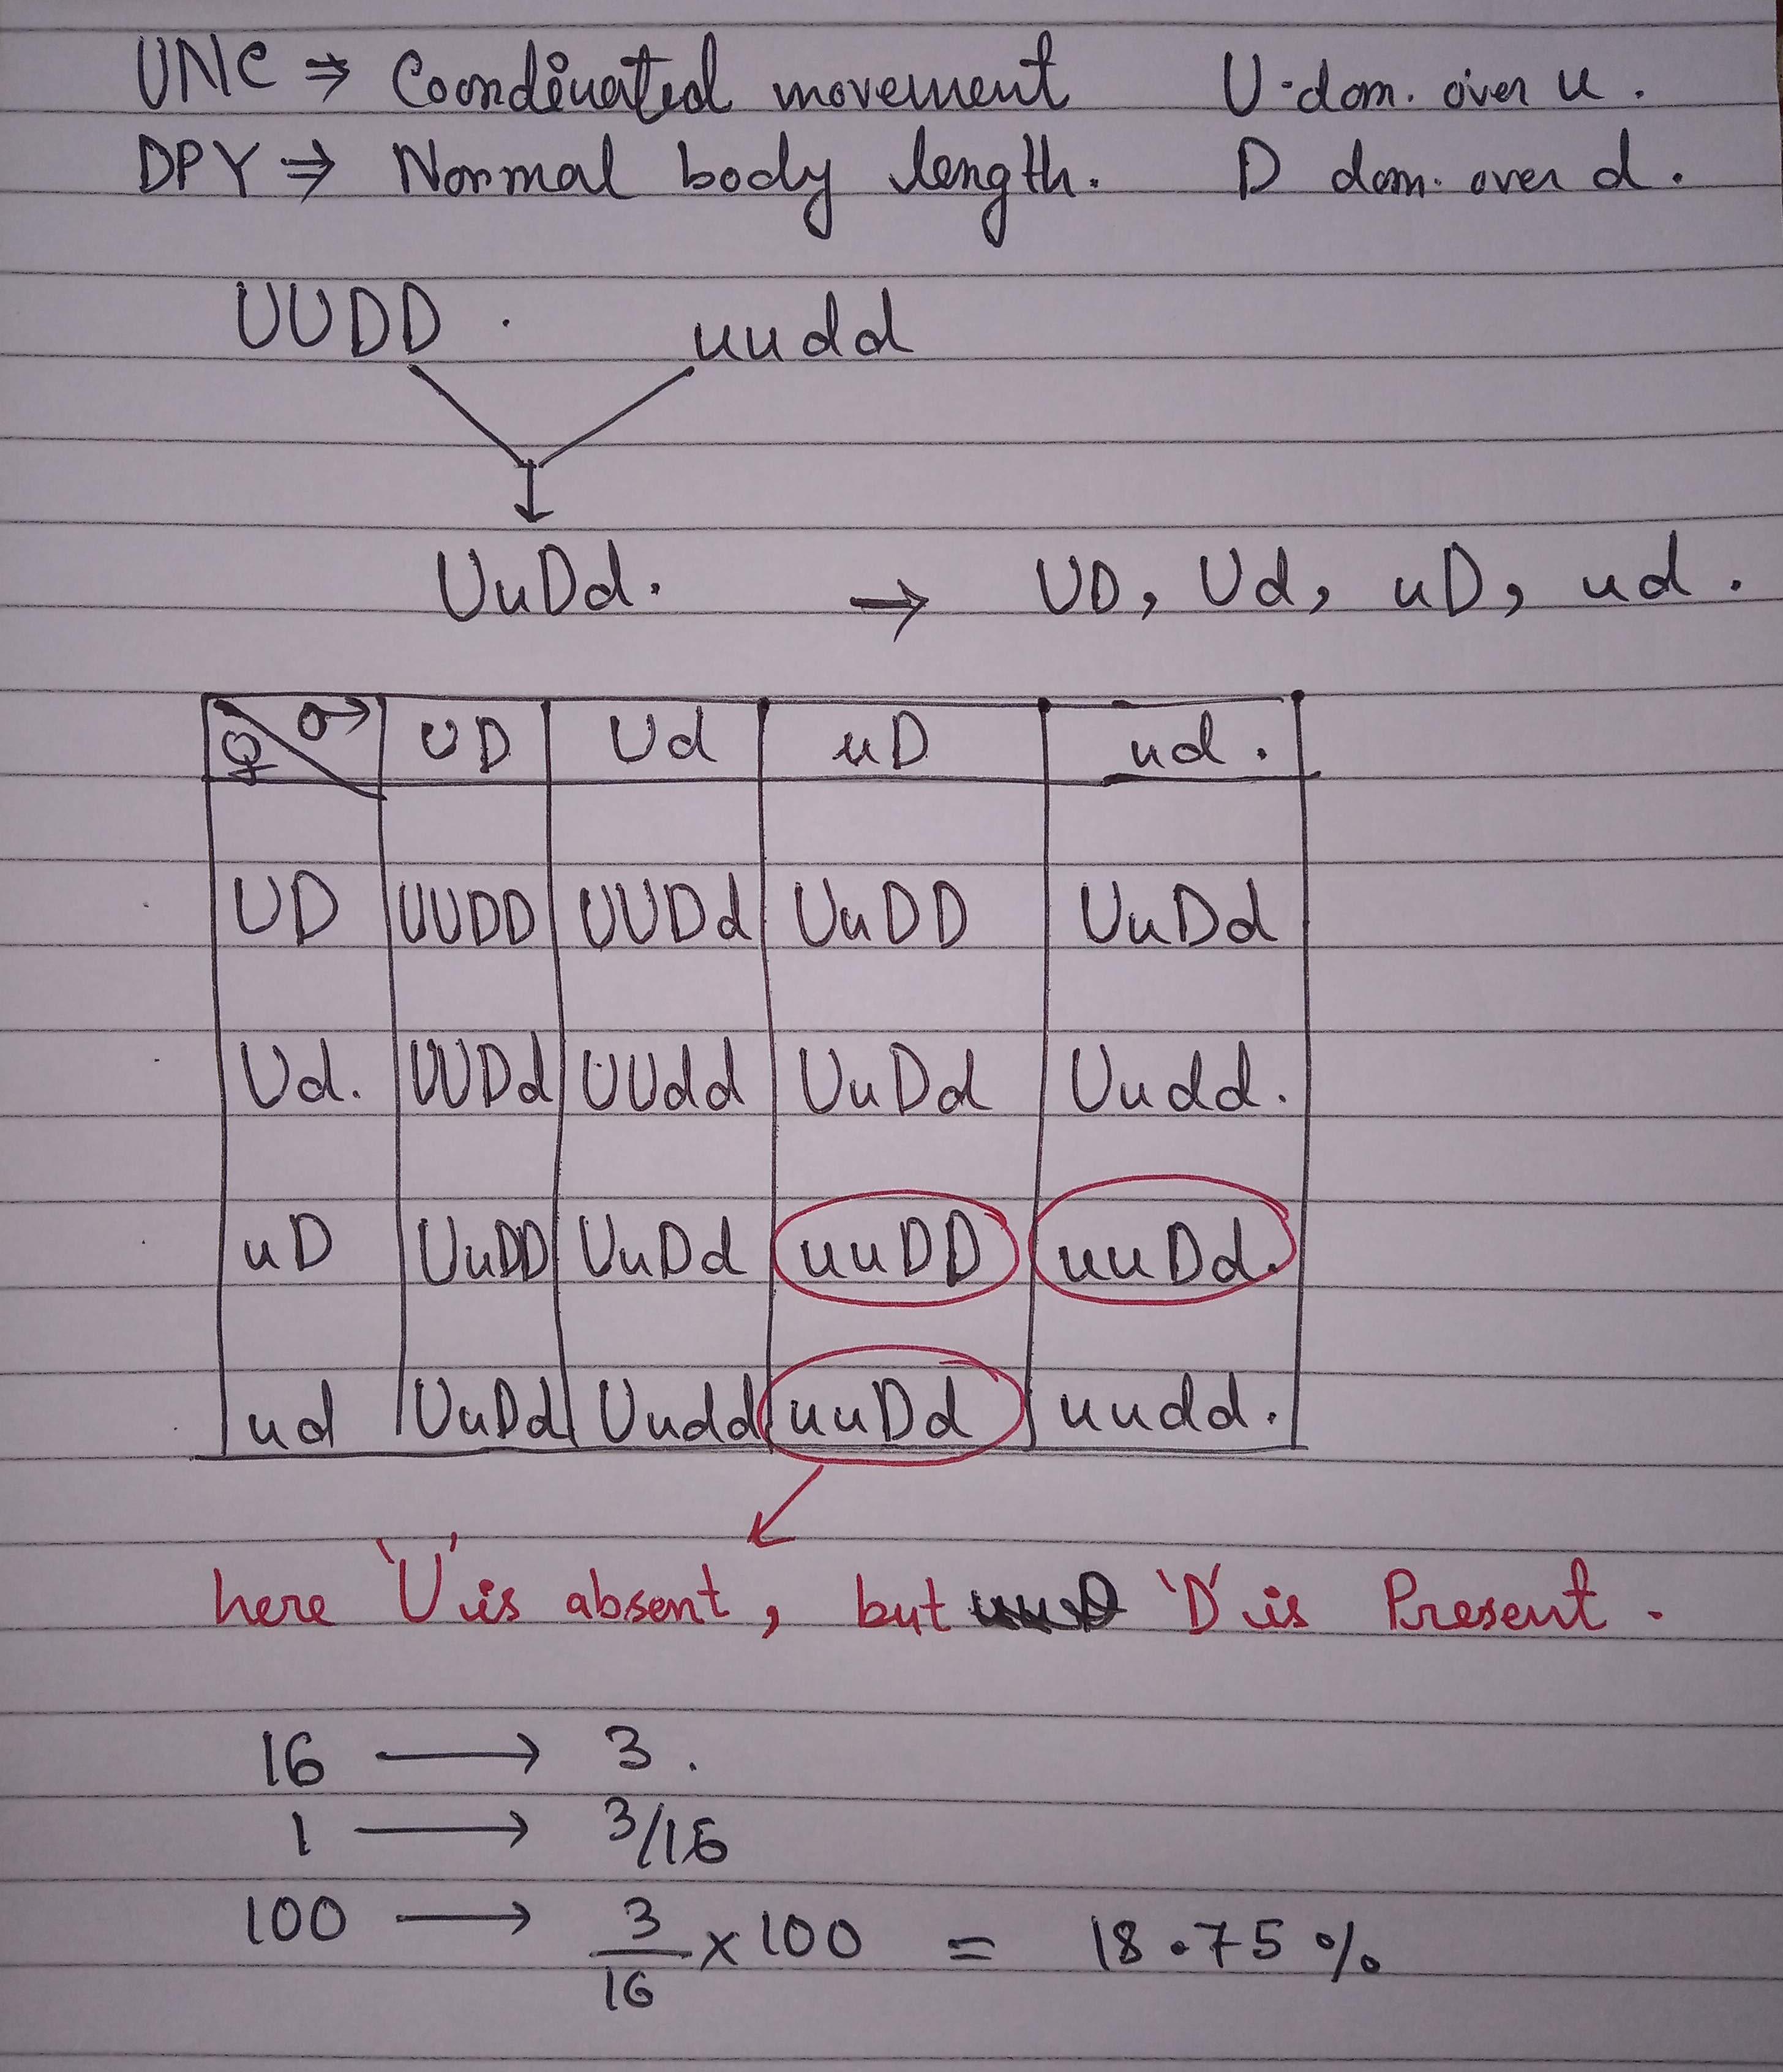 UNC ⇒ Coordinated movement U-dom. over u.
DPY ⇒ Normal body length. D dom. over d.
UUDD uudd
UuDd. → UD, Ud, uD, ud.
♀ ♂ UD Ud uD ud.
UD UUDD UUDd UuDD UuDd
Ud. UUDd UUdd UuDd Uudd.
uD UuDD UuDd uuDD uuDd.
ud UuDd Uudd uuDd uudd.
here 'U' is absent, but 'D' is Present.
16 → 3.
1 → 3/16
100 → 3/16 × 100 = 18.75%